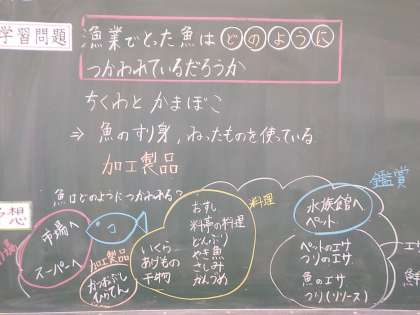 学習問題
漁業でとった魚はどのように
つかわれているだろうか
ちくわと かまぼこ
⇒ 魚のすり身、ねったものを使っている
加工製品
魚はどのようにつかわれる?
予想
市場へ
スーパーへ
加工製品
かつおぶし
ひらてん
いくら
あげもの
干物
料理
おすし
料亭の料理
どんぶり
やき魚
さしみ
かんづめ
鑑賞
水族館へ
ペット
ペットのエサ
つりのエサ
魚のエサ
つり(リリース)
エサ
鮮